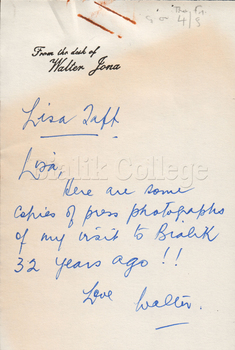 From the desk of
Walter Jona
4/3
Lisa Taft
Lisa,
Here are some
copies of press photographs
of my visit to Bialik
32 years ago !!
Love
Walter.
Bialik College